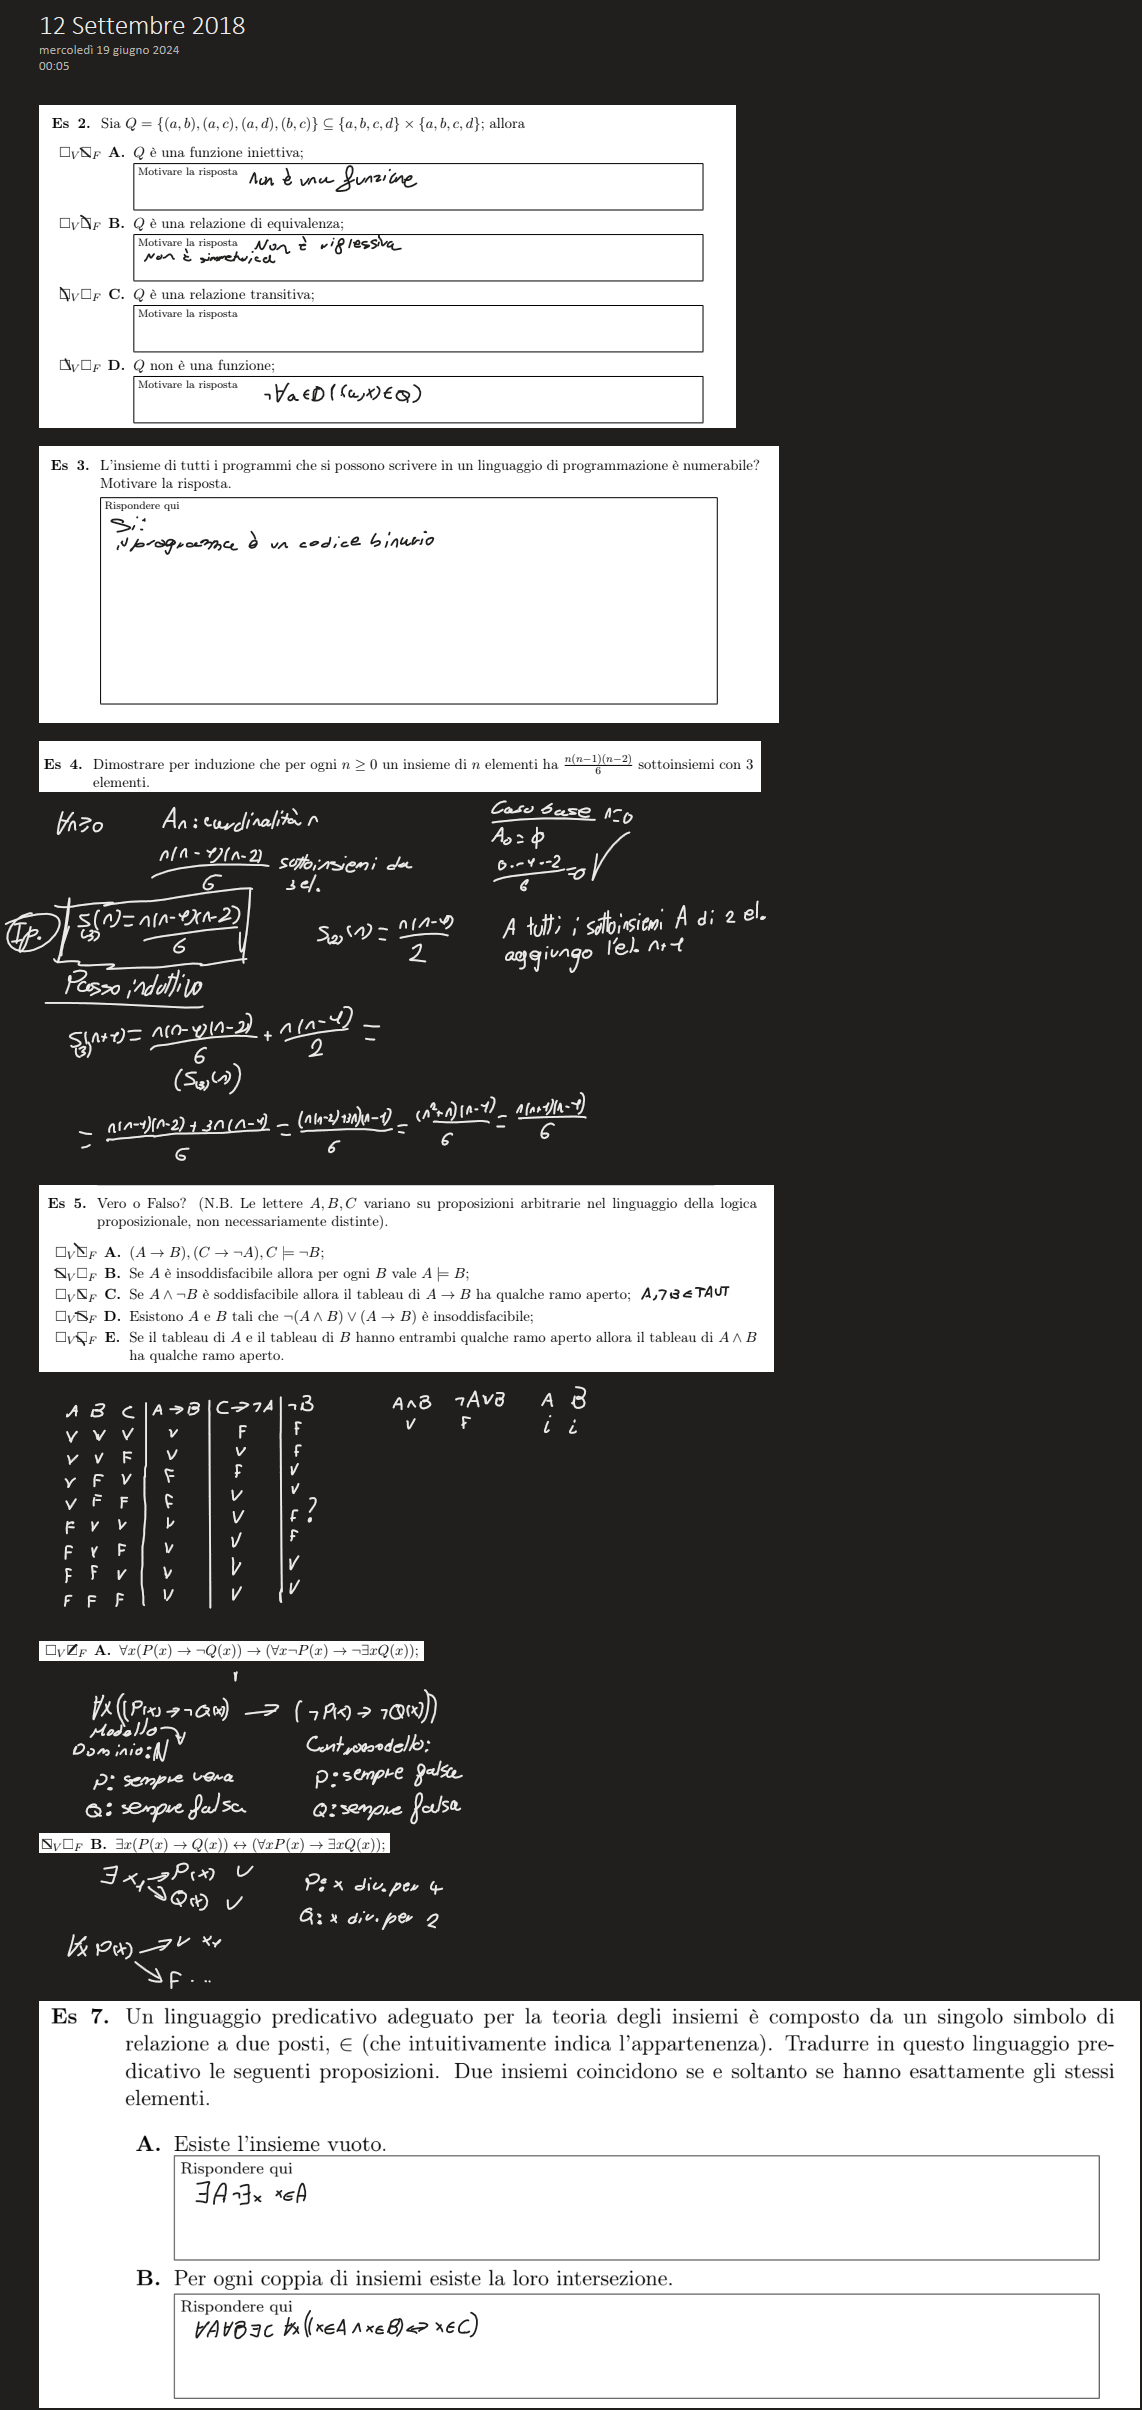 12 Settembre 2018
mercoledì 19 giugno 2024
00:05
Es 2. Sia Q = {(a, b), (a, c), (a, d), (b, c)} ⊆ {a, b, c, d} × {a, b, c, d}; allora
□V□F A. Q è una funzione iniettiva;
Motivare la risposta Non è una funzione
□V□F B. Q è una relazione di equivalenza;
Motivare la risposta Non è riflessiva
Non è simmetrica
□V□F C. Q è una relazione transitiva;
Motivare la risposta
□V□F D. Q non è una funzione;
Motivare la risposta ¬∀a∈D((a,x)∈Q)
Es 3. L'insieme di tutti i programmi che si possono scrivere in un linguaggio di programmazione è numerabile?
Motivare la risposta.
Rispondere qui
Si:
programma è un codice binario
Es 4. Dimostrare per induzione che per ogni n ≥ 0 un insieme di n elementi ha n(n−1)(n−2)/6 sottoinsiemi con 3
elementi.
∀n≥0 An: cardinalità n
n(n-1)(n-2)/6 sottoinsiemi da 3 el.
Caso base n=0
A0 = ∅
0·-1·-2/6 = 0 √
Ip. S(3)(n) = n(n-1)(n-2)/6
S(2)(n) = n(n-1)/2
A tutti i sottoinsiemi A di 2 el.
aggiungo l'el. n+1
Passo induttivo
S(3)(n+1) = n(n-1)(n-2)/6 + n(n-1)/2 =
(S(3)(n))
= n(n-1)(n-2)+3n(n-1)/6 = (n(n-2)+3n)(n-1)/6 = (n²+n)(n-1)/6 = n(n+1)(n-1)/6
Es 5. Vero o Falso? (N.B. Le lettere A, B, C variano su proposizioni arbitrarie nel linguaggio della logica
proposizionale, non necessariamente distinte).
□V□F A. (A → B), (C → ¬A), C ⊨ ¬B;
□V□F B. Se A è insoddisfacibile allora per ogni B vale A ⊨ B;
□V□F C. Se A ∧ ¬B è soddisfacibile allora il tableau di A → B ha qualche ramo aperto; A,¬B∈TAUT
□V□F D. Esistono A e B tali che ¬(A ∧ B) ∨ (A → B) è insoddisfacibile;
□V□F E. Se il tableau di A e il tableau di B hanno entrambi qualche ramo aperto allora il tableau di A ∧ B
ha qualche ramo aperto.
A B C | A→B | C→¬A | ¬B
V V V V F F
V V F V V F
V F V F F V
V F F F V V
F V V V V F ?
F V F V V F
F F V V V V
F F F V V V
A∧B ¬A∨B A B
V F i i
□V□F A. ∀x(P(x) → ¬Q(x)) → (∀x¬P(x) → ¬∃xQ(x));
∀x((P(x)→¬Q(x)) → (¬P(x)→¬Q(x)))
Modello
Dominio: N
P: sempre vera
Q: sempre falsa
Contromodello:
P: sempre falsa
Q: sempre falsa
□V□F B. ∃x(P(x) → Q(x)) ↔ (∀xP(x) → ∃xQ(x));
∃x1 → P(x) V
→ Q(x) V
P: x div. per 4
Q: x div. per 2
∀x P(x) → V x1
→ F ...
Es 7. Un linguaggio predicativo adeguato per la teoria degli insiemi è composto da un singolo simbolo di
relazione a due posti, ∈ (che intuitivamente indica l'appartenenza). Tradurre in questo linguaggio pre-
dicativo le seguenti proposizioni. Due insiemi coincidono se e soltanto se hanno esattamente gli stessi
elementi.
A. Esiste l'insieme vuoto.
Rispondere qui
∃A ¬∃x x∈A
B. Per ogni coppia di insiemi esiste la loro intersezione.
Rispondere qui
∀A∀B∃C ∀x((x∈A ∧ x∈B)⇔x∈C)